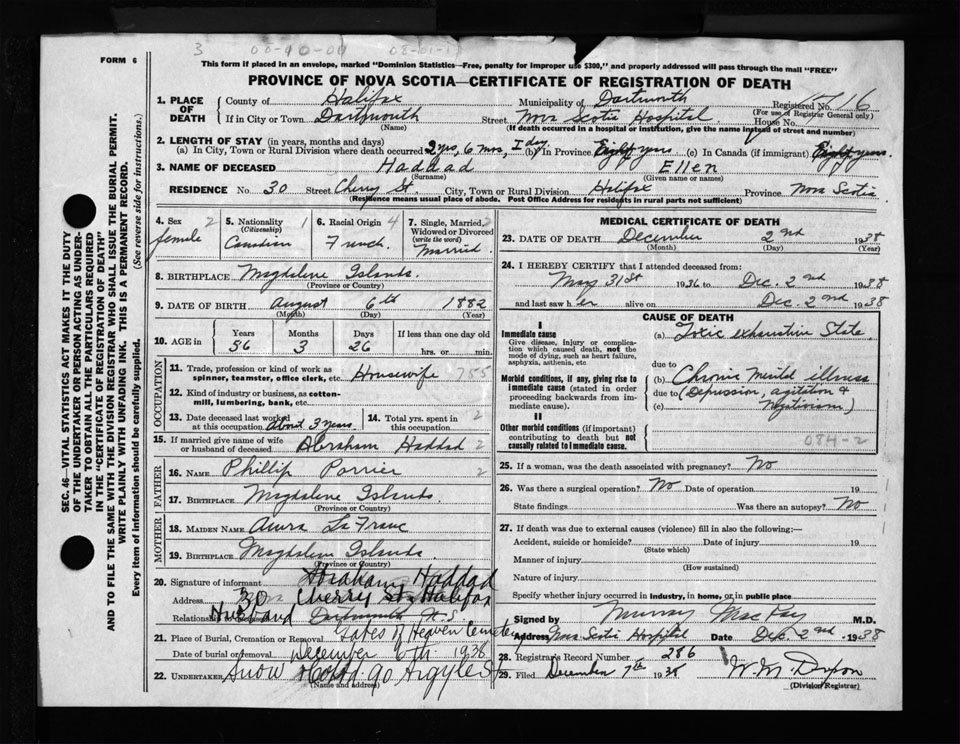 3 00-90-00 08-01-1
FORM 6
This form if placed in an envelope, marked "Dominion Statistics—Free, penalty for improper use $300," and properly addressed will pass through the mail "FREE"
PROVINCE OF NOVA SCOTIA—CERTIFICATE OF REGISTRATION OF DEATH
SEC. 46—VITAL STATISTICS ACT MAKES IT THE DUTY
OF THE UNDERTAKER OR PERSON ACTING AS UNDER-
TAKER TO OBTAIN ALL THE PARTICULARS REQUIRED
IN THE "CERTIFICATE OF REGISTRATION OF DEATH"
AND TO FILE THE SAME WITH THE DIVISION REGISTRAR WHO SHALL ISSUE THE BURIAL PERMIT.
WRITE PLAINLY WITH UNFADING INK. THIS IS A PERMANENT RECORD.
Every item of information should be carefully supplied. (See reverse side for instructions.)
1. PLACE OF DEATH
County of Halifax Municipality of Dartmouth Registered No. 16
(For use of Registrar General only)
If in City or Town Dartmouth Street Nova Scotia Hospital House No.
(Name) (If death occurred in a hospital or institution, give the name instead of street and number)
2. LENGTH OF STAY (in years, months and days)
(a) In City, Town or Rural Division where death occurred 2 yrs, 6 mos, 1 day (b) In Province Eighty yrs (c) In Canada (if immigrant) Eighty yrs.
3. NAME OF DECEASED Haddad Ellen
(Surname) (Given name or names)
RESIDENCE No. 30 Street Cherry St. City, Town or Rural Division Halifax Province Nova Scotia
(Residence means usual place of abode. Post Office Address for residents in rural parts not sufficient)
4. Sex 2 female
5. Nationality (Citizenship) 1 Canadian
6. Racial Origin 4 French
7. Single, Married, Widowed or Divorced (write the word) 2 Married
8. BIRTHPLACE Magdalene Islands.
(Province or Country)
9. DATE OF BIRTH August 6th 1882
(Month) (Day) (Year)
10. AGE in Years Months Days If less than one day old
56 3 26 hrs. or min.
OCCUPATION
11. Trade, profession or kind of work as
spinner, teamster, office clerk, etc. Housewife 755
12. Kind of industry or business, as cotton-
mill, lumbering, bank, etc.
13. Date deceased last worked at this occupation about 3 years.
14. Total yrs. spent in this occupation 2
15. If married give name of wife
or husband of deceased Abraham Haddad 2
FATHER
16. NAME Phillip Porrier 2
17. BIRTHPLACE Magdalene Islands.
(Province or Country)
MOTHER
18. MAIDEN NAME La Franc
19. BIRTHPLACE Magdalene Islands.
(Province or Country)
20. Signature of informant Abraham Haddad
Address 30 Cherry St Halifax
Relationship to deceased Husband Dartmouth N.S
21. Place of Burial, Cremation or Removal Gates of Heaven Cemetery
Date of burial or removal December 6th 1938
22. UNDERTAKER Snow & Co Ltd 90 Argyle St
(Name and address)
MEDICAL CERTIFICATE OF DEATH
23. DATE OF DEATH December 2nd 1938
(Month) (Day)
24. I HEREBY CERTIFY that I attended deceased from:
May 31st 1936 to Dec. 2nd 1938
and last saw her alive on Dec. 2nd 1938
CAUSE OF DEATH
I
Immediate cause
Give disease, injury or complica-
tion which caused death, not the
mode of dying, such as heart failure,
asphyxia, asthenia, etc
(a) Toxic exhaustive State
due to
Morbid conditions, if any, giving rise to
immediate cause (stated in order
proceeding backwards from
immediate cause).
(b) Chronic mental illness
due to (Depression, agitation &
(c) Negativism)
II
Other morbid conditions (if important)
contributing to death but not
causally related to immediate cause.
084-2
25. If a woman, was the death associated with pregnancy? No
26. Was there a surgical operation? No Date of operation 19
State findings Was there an autopsy? No
27. If death was due to external causes (violence) fill in also the following:—
Accident, suicide or homicide? Date of injury 19
(State which)
Manner of injury
(How sustained)
Nature of injury
Specify whether injury occurred in industry, in home, or in public place
Signed by Murray MacKay M.D.
Address Nova Scotia Hospital Date Dec. 2nd 1938
28. Registrar's Record Number 286
29. Filed December 7th 1938 W. M.
(Division Registrar)